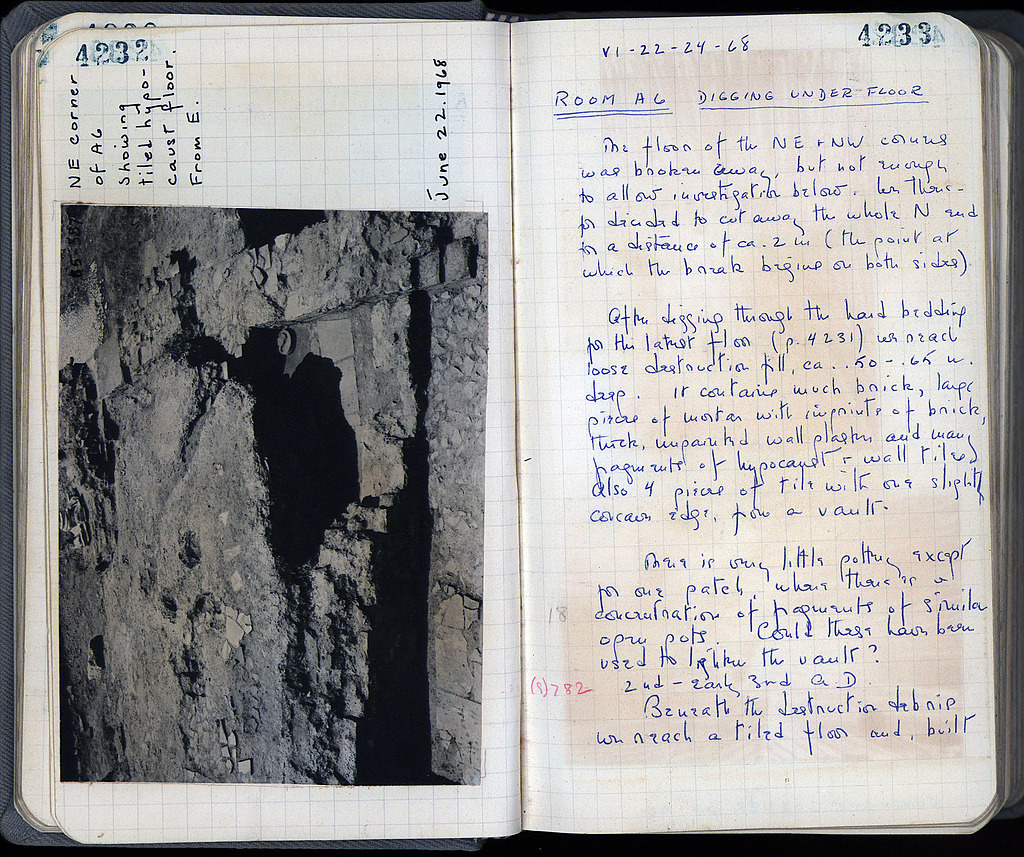 4232
NE corner
of A6
showing
tiled hypo-
caust floor.
From E.
June 22.1968
4233
VI-22-24-68
ROOM A6 DIGGING UNDER FLOOR
The floor of the NE + NW corners
was broken away, but not enough
to allow investigation below. We there-
for decided to cut away the whole N end
for a distance of ca. 2 m (the point at
which the break begins on both sides).
After digging through the hard bedding
for the latest floor (p. 4231) we reach
loose destruction fill, ca. .50-.65 m.
deep. It contains much brick, large
pieces of mortar with imprints of brick,
thick, unpainted wall plaster and many
fragments of hypocaust + wall tiles.
Also 4 pieces of tile with one slightly
concave edge, from a vault.
There is very little pottery except
for one patch, where there is a
concentration of fragments of similar
18
open pots. Could these have been
used to lighten the vault?
2nd - early 3rd A.D.
(S)782
Beneath the destruction debris
we reach a tiled floor and, built